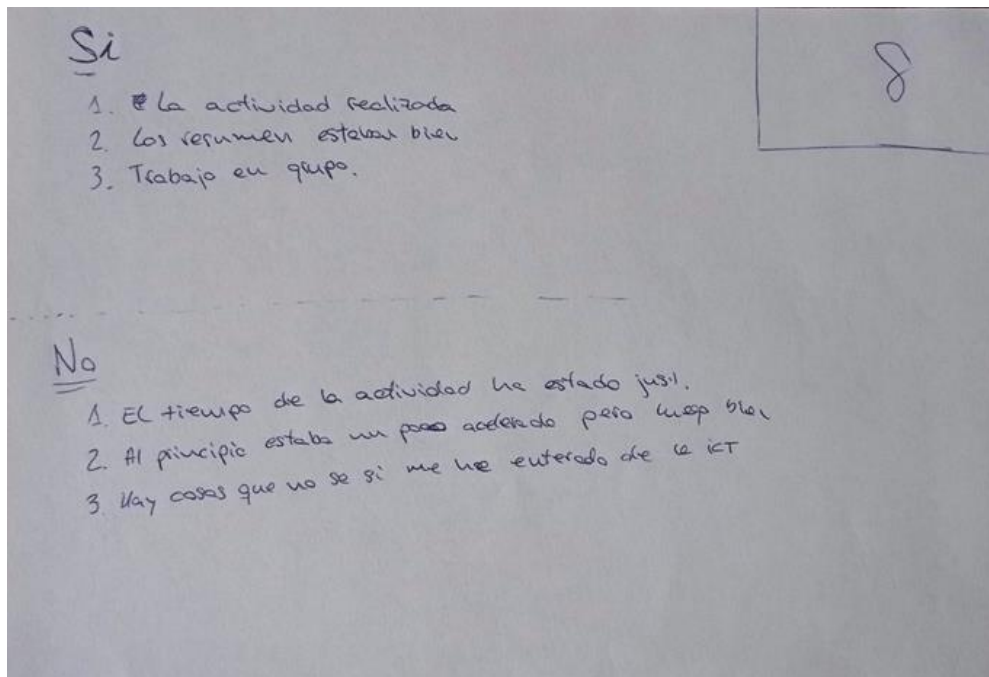 Si
8
1. La actividad realizada
2. Los resumen estaban bien
3. Trabajo en grupo.
No
1. El tiempo de la actividad ha estado
2. Al principio estaba un poco acelerado pero luego bien
3. Hay cosas que no se si me he enterado de la ICT